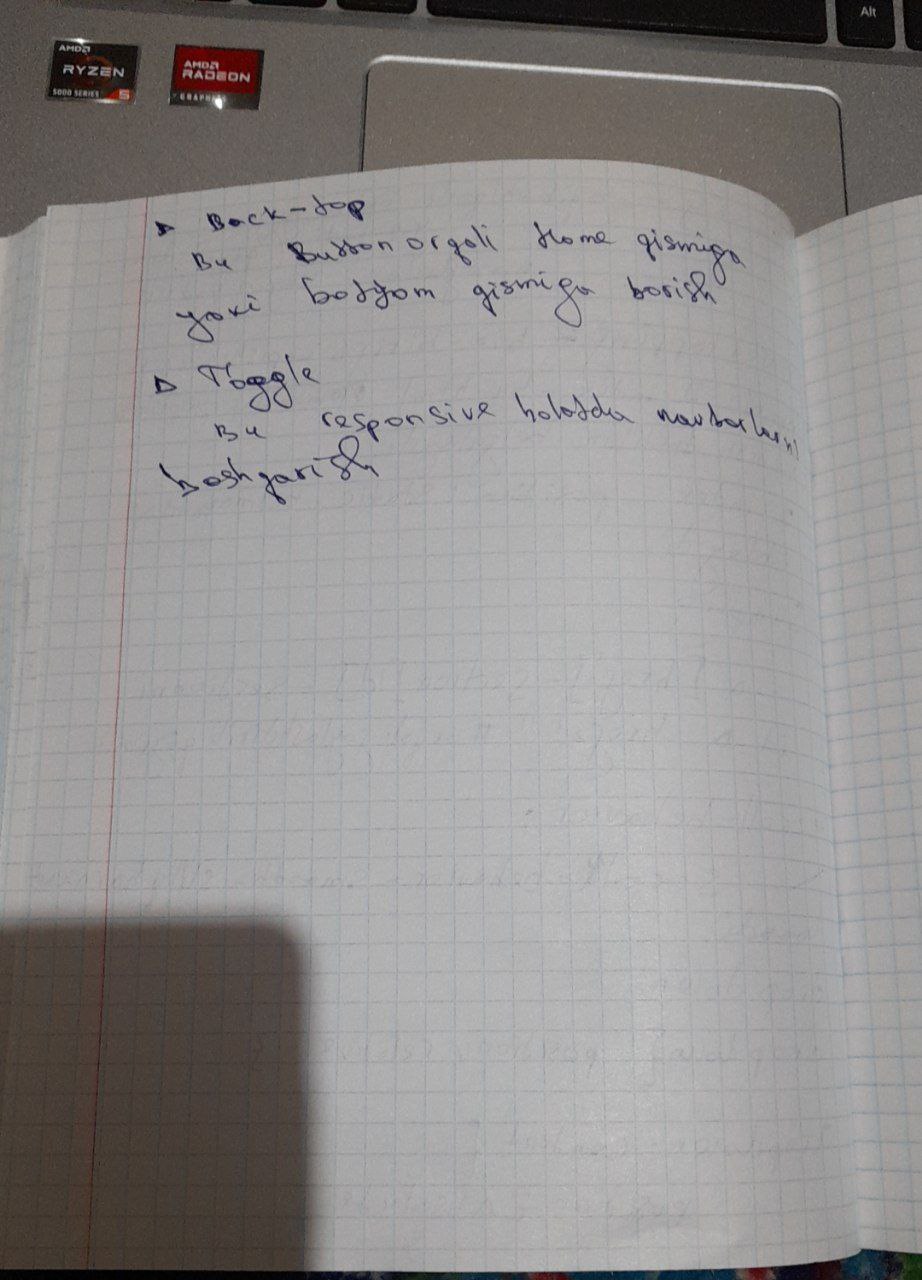 Alt
AMD
RYZEN
5000 SERIES 5
AMD
RADEON
GRAPHICS
Back-top
Bu Button orqali Home qismiga
yoki bottom qismiga borish
Toggle
Bu responsive holatda navbarlarni
boshqarish